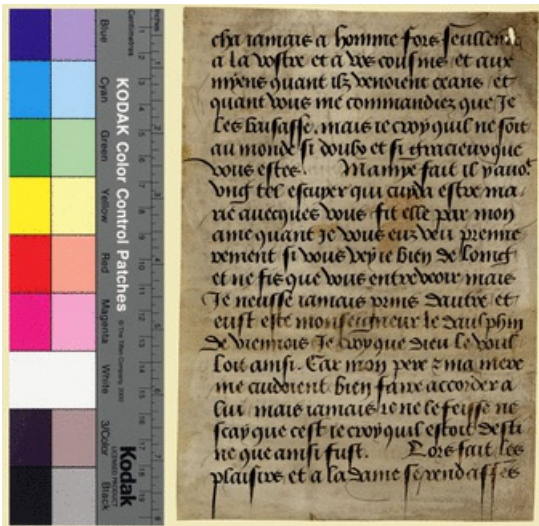 Blue
Cyan
Green
Yellow
Red
Magenta
White
3/Color
Black
KODAK Color Control Patches
© The Tiffen Company, 2000
Kodak
LICENSED PRODUCT
Centimetres
Inches
cha iamais a homme fors
a la vostre et a vos cousins et aux
myens quant ilz venoient ceans et
quant vous me commandiez que Je
les baisasse. mais ie croy quil ne soit
au monde si doulx et si gracieux que
vous estes. Mamye fait il y
vng tel escuyer qui cuida estre ma
rie auecques vous fit elle par mon
ame quant Je vous euz veu premie
rement si vous veyie bien de loing
et ne fis que vous entreveoir mais
Je neusse iamais prins dautre et
eust este monseigneur le daulphin
de viennois Je croy que dieu le voul
loit ainsi. Car mon pere ⁊ ma mere
me cuidoient bien faire accorder a
lui mais iamais ie ne le feisse ne
scay que cest ie croy quil estoit desti
ne que ainsi fust. Lors fait les
plaisirs et a la dame se rend asses